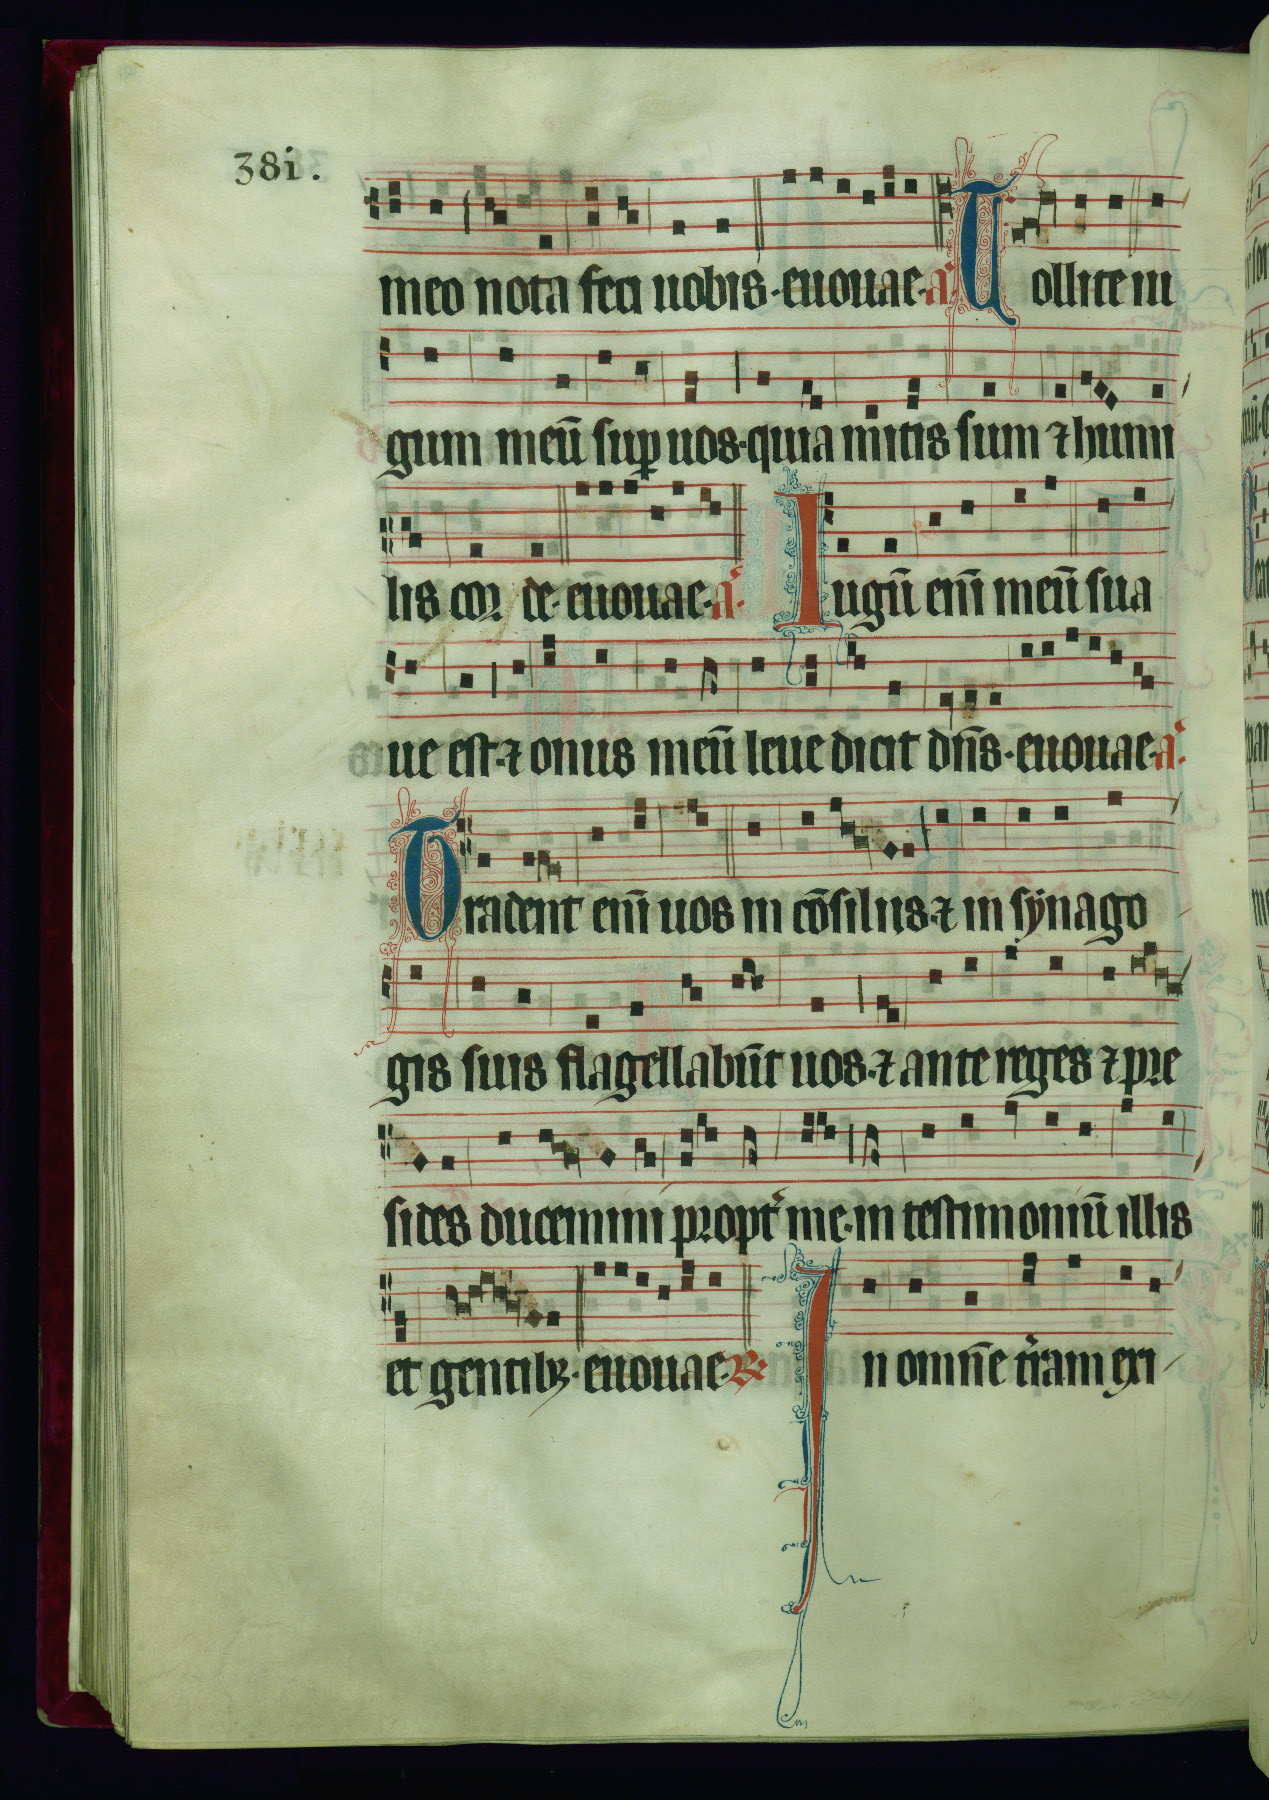 38i.
meo nota feci uobis·euouae·a᷑ Tollite iu
gum meū suꝑ uos·quia mitis sum ⁊ humi
lis cor de·euouae·a᷑· Iugū eni᷑ meū sua
ue est·⁊ onus meū leue dicit dn̄s·euouae·a᷑·
Tradent eni᷑ uos in cōsiliis·⁊ in synago
gis suis flagellabūt uos·⁊ ante reges ⁊ pre
sides ducemini propt᷑ me·in testimoniū illis
et gentibꝫ·euouae·℟· In omn̄e t᷑ram exi